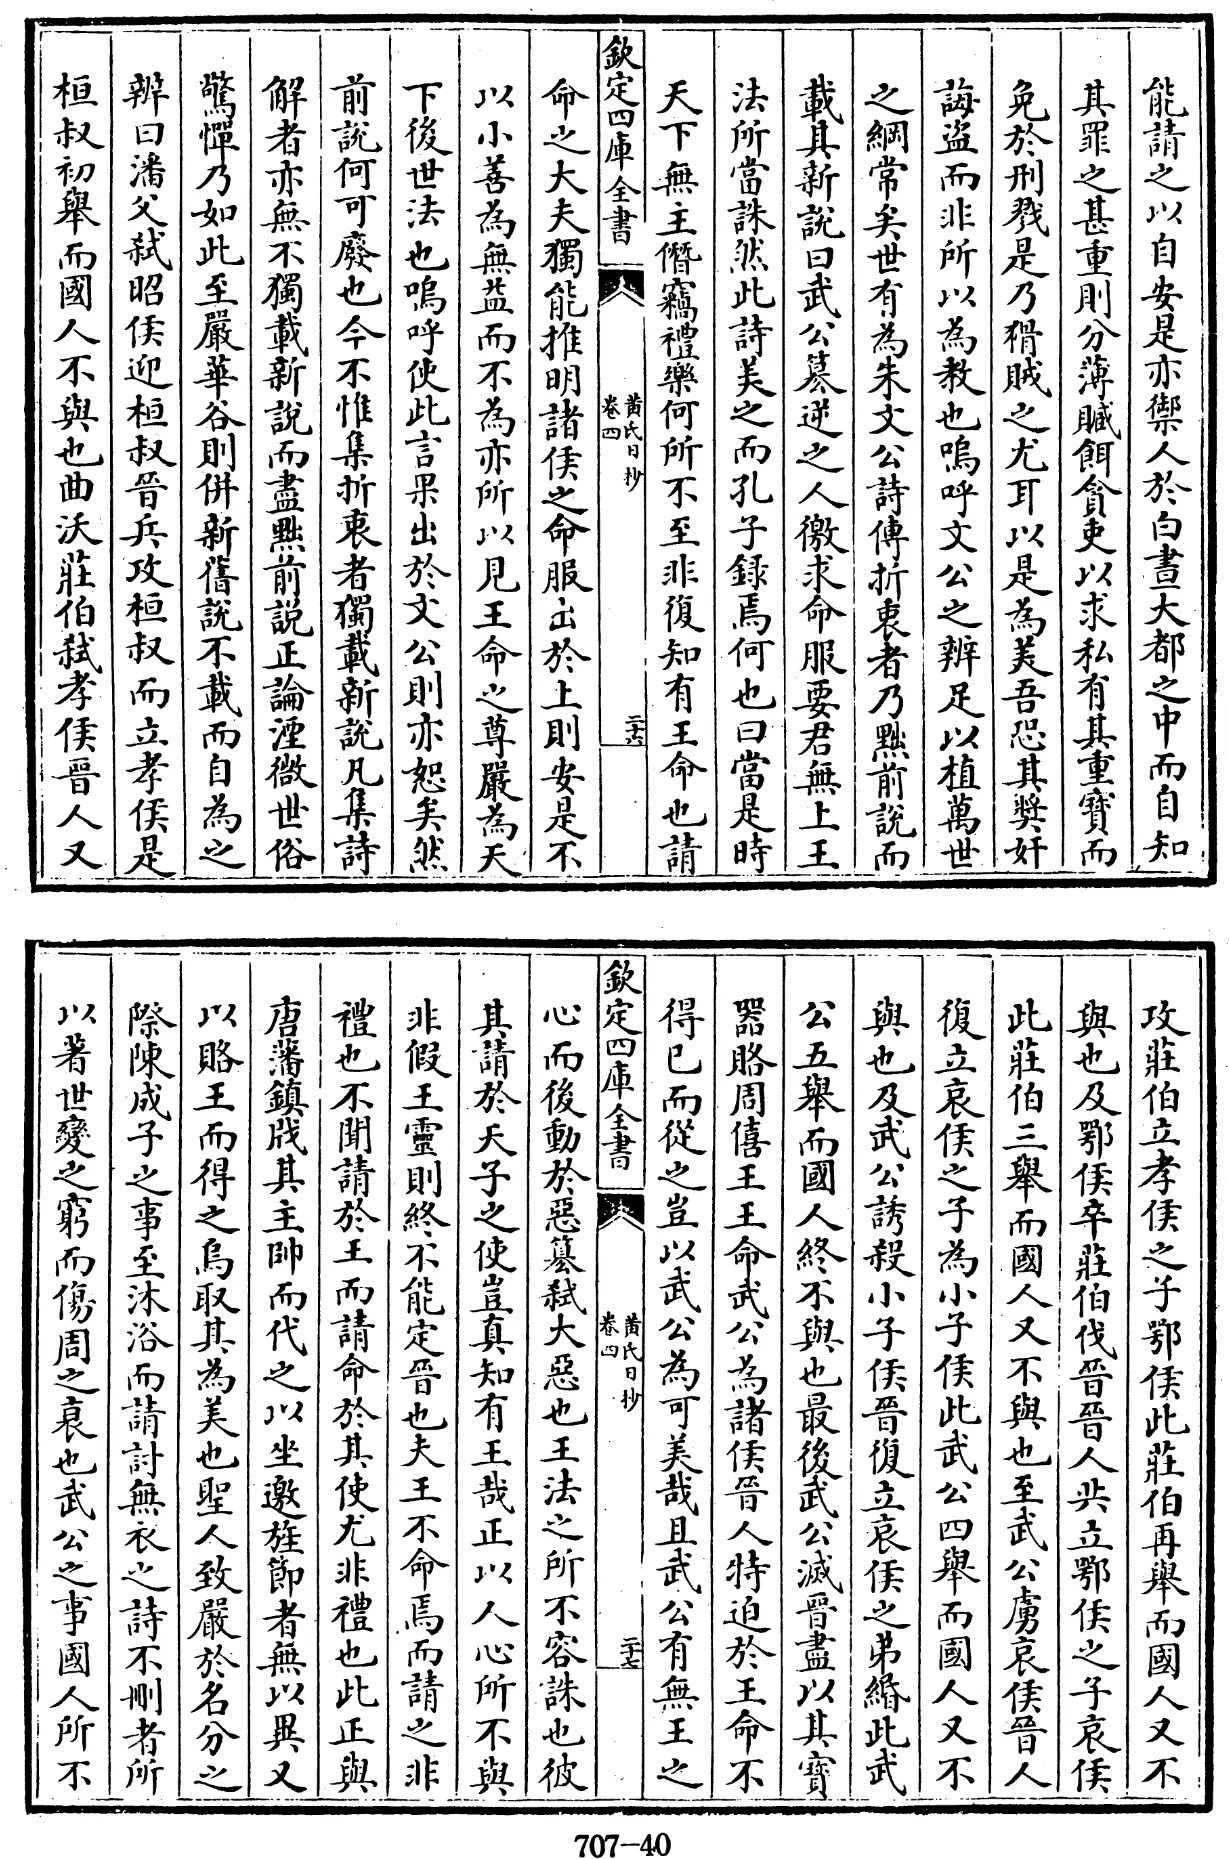 能請之以自安是亦禦人於白晝大都之中而自知
其罪之甚重則分薄贓餌貪吏以求私有其重寳而
免於刑戮是乃猾賊之尤耳以是為美吾恐其奬奸
誨盗而非所以為教也嗚呼文公之辨足以植萬世
之綱常矣世有為朱文公詩傳折衷者乃黜前説而
載其新説曰武公簒逆之人徼求命服要君無上王
法所當誅然此詩美之而孔子録焉何也曰當是時
天下無主僭竊禮樂何所不至非復知有王命也請
欽定四庫全書
黄氏日抄
卷四
二十六
命之大夫獨能推明諸侯之命服出於上則安是不
以小善為無益而不為亦所以見王命之尊嚴為天
下後世法也嗚呼使此言果出於文公則亦恕矣然
前説何可廢也今不惟集折衷者獨載新説凡集詩
解者亦無不獨載新説而盡黜前説正論湮微世俗
驚憚乃如此至嚴華谷則併新舊説不載而自為之
辨曰潘父弑昭侯迎桓叔晉兵攻桓叔而立孝侯是
桓叔初舉而國人不與也曲沃莊伯弑孝侯晉人又
攻莊伯立孝侯之子鄂侯此莊伯再舉而國人又不
與也及鄂侯卒莊伯伐晉晉人共立鄂侯之子哀侯
此莊伯三舉而國人又不與也至武公虜哀侯晉人
復立哀侯之子為小子侯此武公四舉而國人又不
與也及武公誘殺小子侯晉復立哀侯之弟緡此武
公五舉而國人終不與也最後武公滅晉盡以其寳
器賂周僖王王命武公為諸侯晉人特迫於王命不
得已而從之豈以武公為可美哉且武公有無王之
欽定四庫全書
黄氏日抄
卷四
二十七
心而後動於惡簒弑大惡也王法之所不容誅也彼
其請於天子之使豈真知有王哉正以人心所不與
非假王靈則終不能定晉也夫王不命焉而請之非
禮也不聞請於王而請命於其使尤非禮也此正與
唐藩鎮戕其主帥而代之以坐邀旌節者無以異又
以賂王而得之烏取其為美也聖人致嚴於名分之
際陳成子之事至沐浴而請討無衣之詩不刪者所
以著世變之窮而傷周之衰也武公之事國人所不
707-40